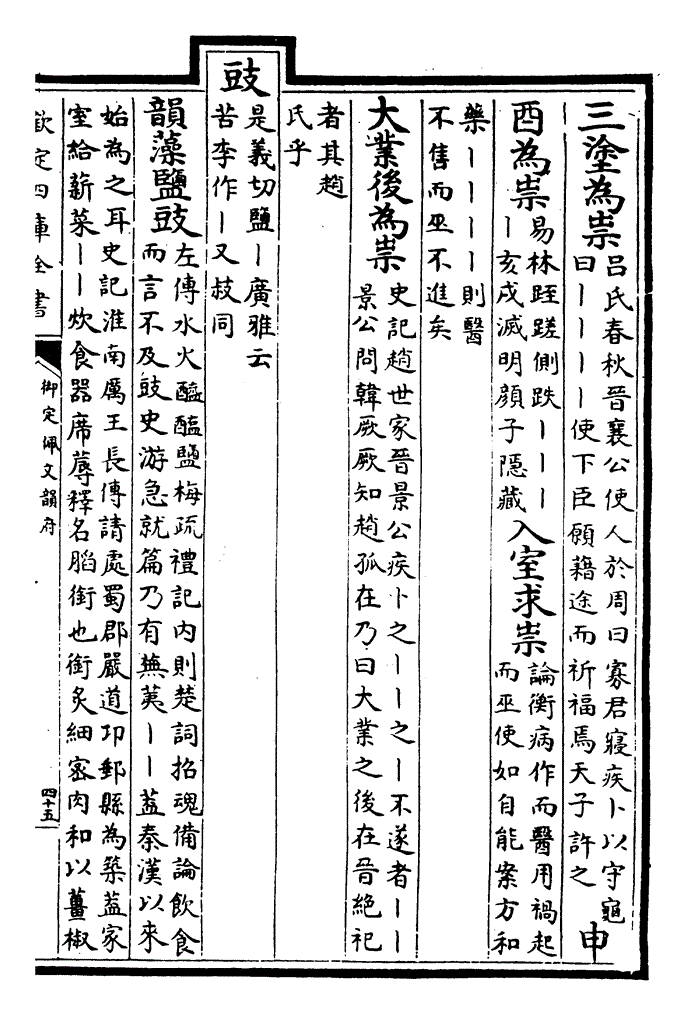 三塗為祟呂氏春秋晉襄公使人於周曰寡君寢疾卜以守龜
曰丨丨丨丨使下臣願藉途而祈福焉天子許之申
酉為祟易林踁蹉側跌丨丨丨
丨亥戌滅明顔子隱藏入室求祟論衡病作而醫用禍起
而巫使如自能案方和
藥丨丨丨丨則醫
不售而巫不進矣
大業後為祟史記趙世家晉景公疾卜之丨丨之丨不遂者丨丨
景公問韓厥厥知趙孤在乃曰大業之後在晉絶祀
者其趙
氏乎
豉
是義切鹽丨廣雅云
苦李作丨又敊同
韻藻鹽豉左傳水火醯醢鹽梅疏禮記内則楚詞招魂備論飲食
而言不及豉史游急就篇乃有蕪荑丨丨葢秦漢以來
始為之耳史記淮南厲王長傳請處蜀郡嚴道卭郵縣為築葢家
室給薪菜丨丨炊食器席蓐釋名䐄銜也銜炙細宻肉和以薑椒
欽定四庫全書
御定佩文韻府
四十五